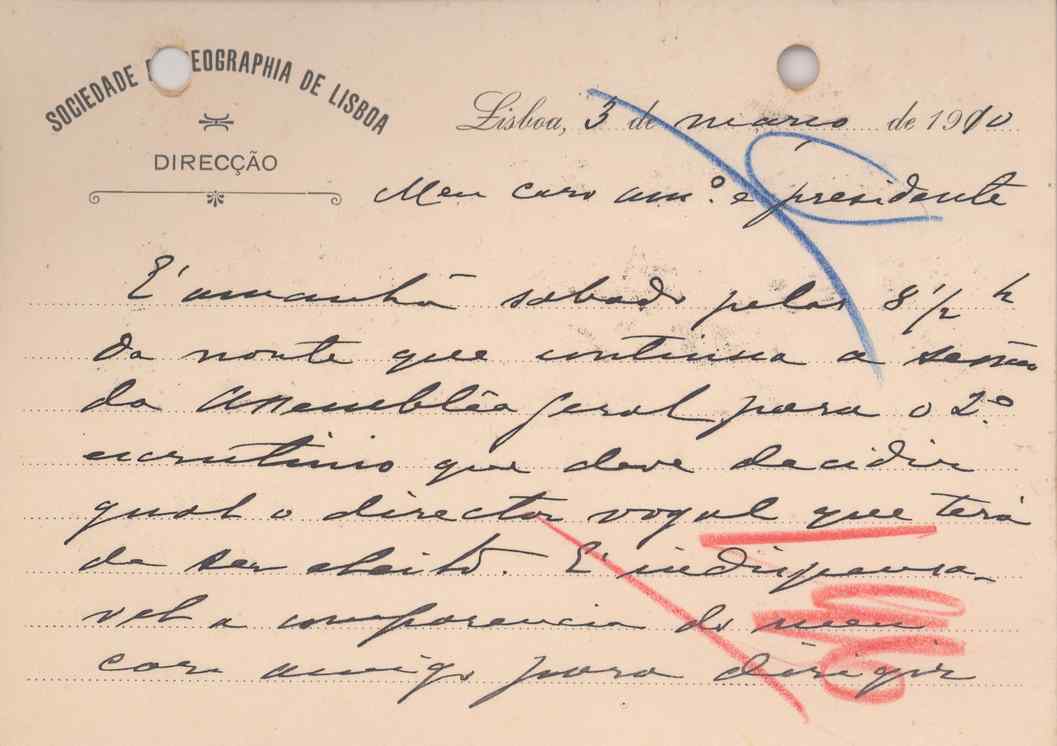 SOCIEDADE DE GEOGRAPHIA DE LISBOA
DIRECÇÃO
Lisboa, 3 de março de 1910
Meu caro am.º e presidente
É amanhã sabado pelas 8 1/2 h
da noute que continua a sessão
da Assembléa geral para o 2.º
escrutinio que deve decidir
qual o director vogal que terá
de ser eleito. É indispensa-
vel a comparencia do meu
caro amigo para dirigir